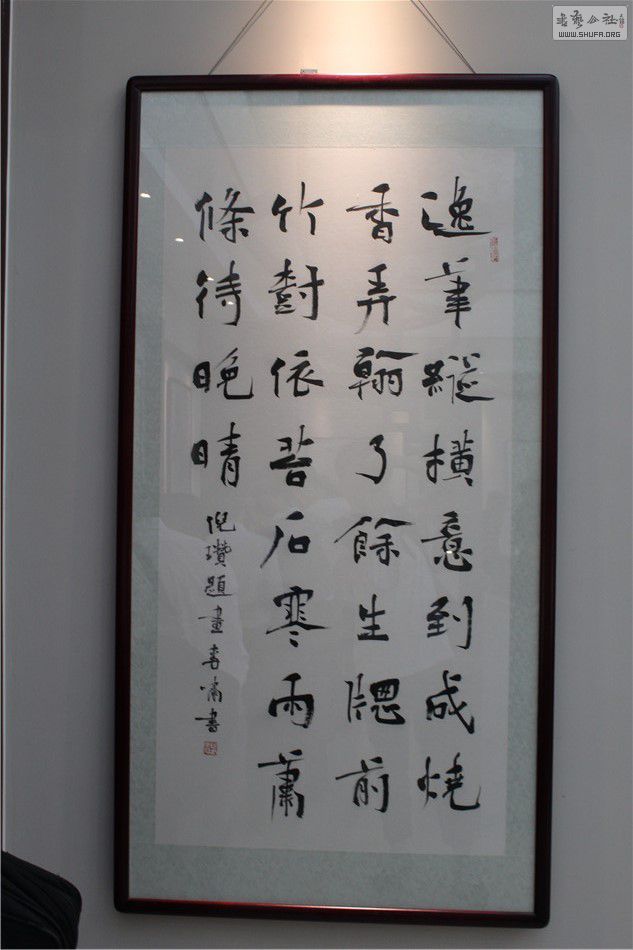 逸筆縱橫意到成燒
香弄翰了餘生牕前
竹樹依苔石寒雨蕭
條待晚晴
倪瓚題畫 嘯書
書藝公社
WWW.SHUFA.ORG